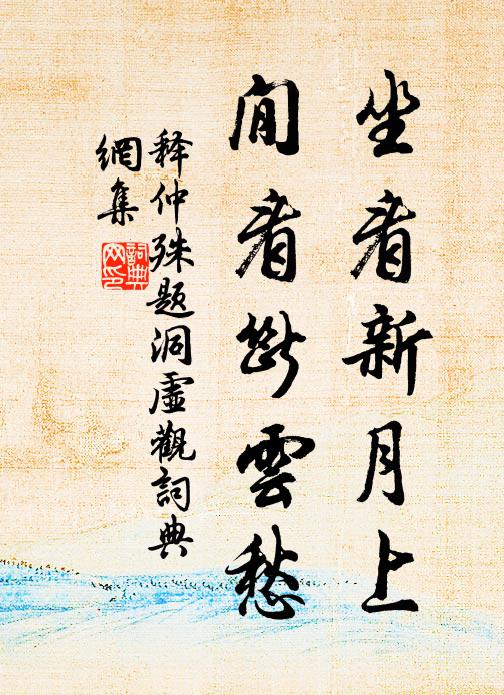 坐看新月上
閒看斷雲愁
释仲殊题洞虛觀詞典
網集
詞典
网印